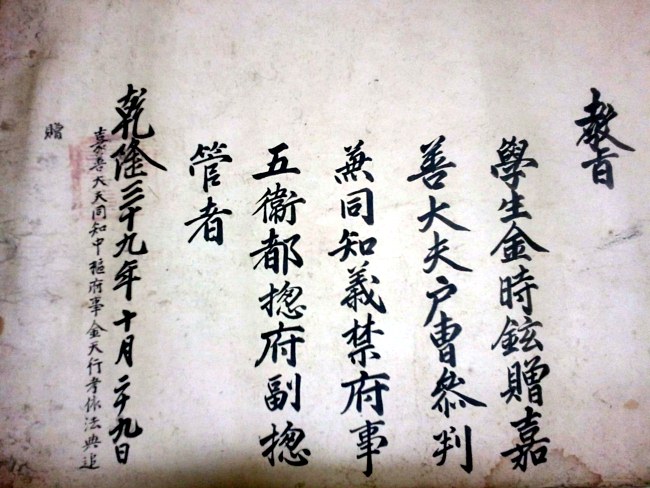 教旨
學生金時鉉贈嘉
善大夫户曹叅判
兼同知義禁府事
五衛都揔府副揔
管者
乾隆三十九年十月二十九日
嘉善大夫同知中樞府事金天行考依法典追
贈